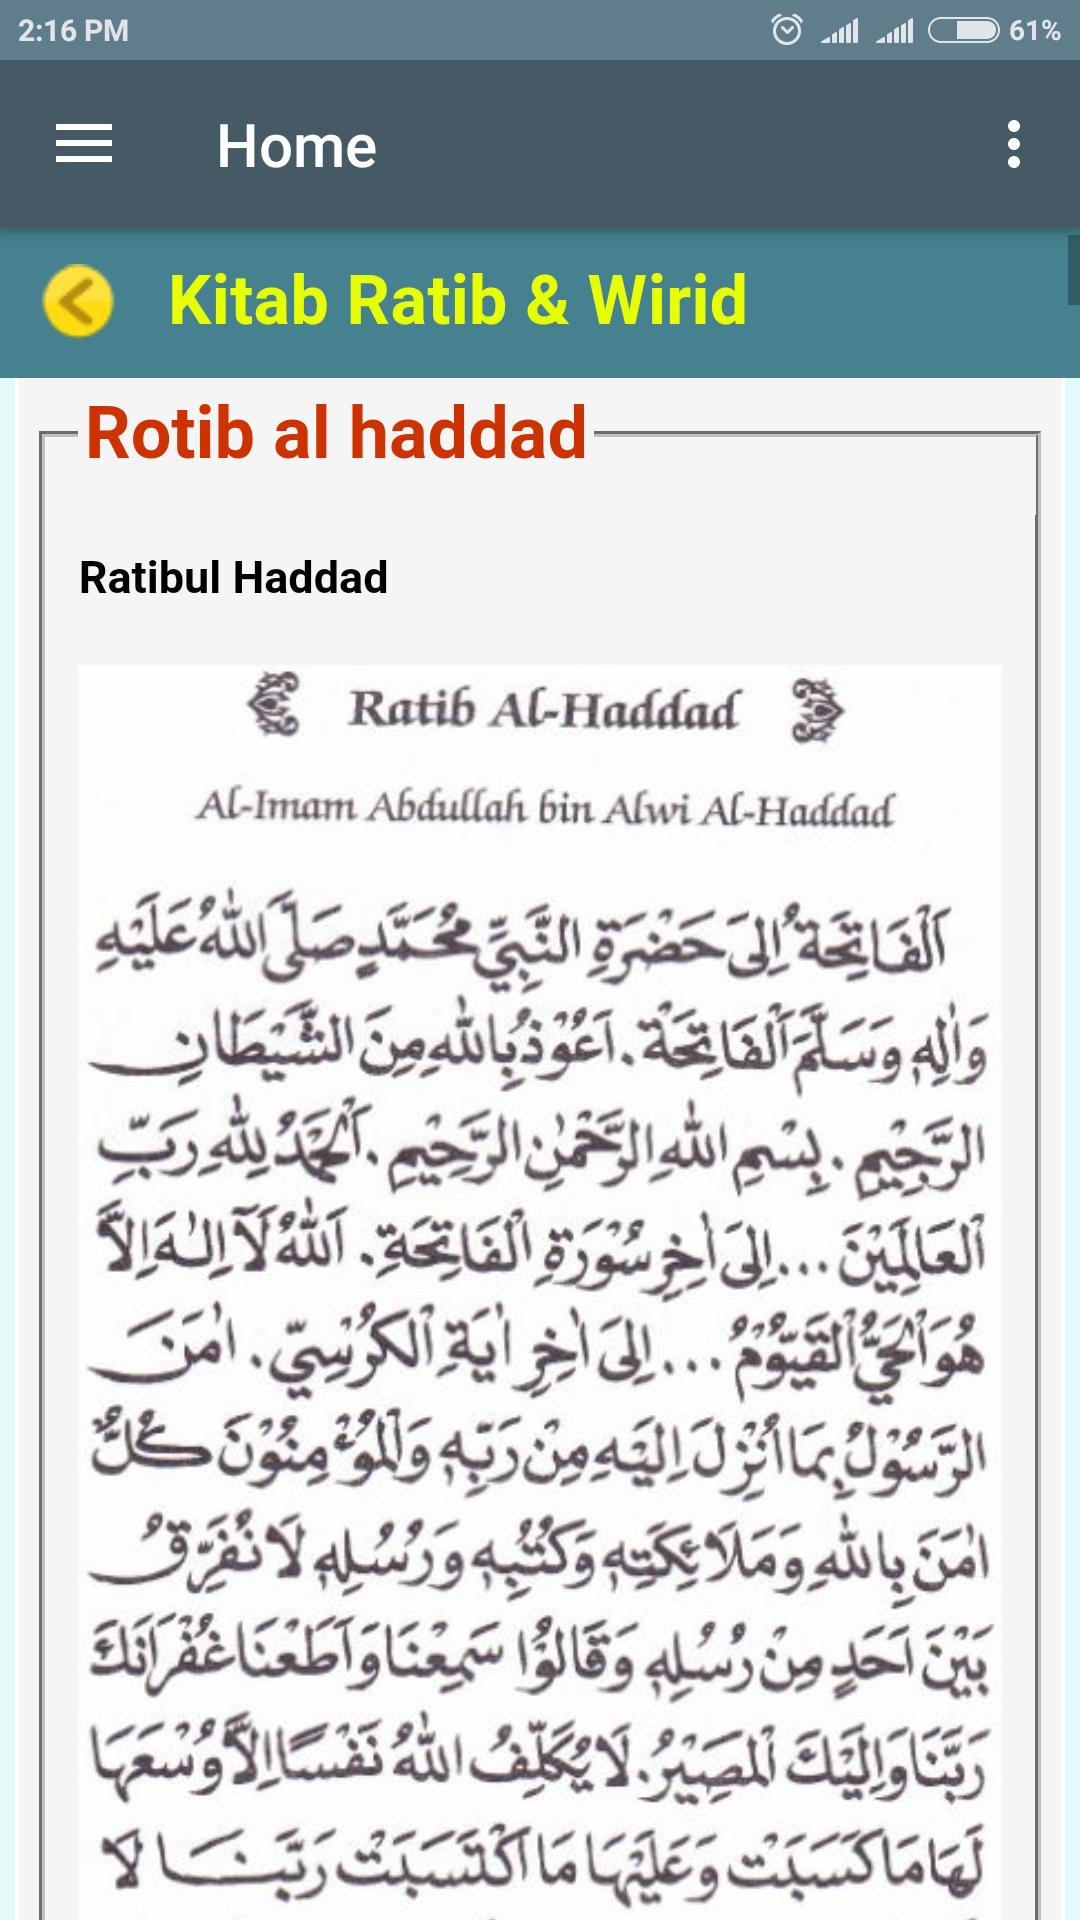 2:16 PM
61%
Home
Kitab Ratib & Wirid
Rotib al haddad
Ratibul Haddad
Ratib Al-Haddad
Al-Imam Abdullah bin Alwi Al-Haddad
اَلْفَاتِحَةُ اِلَى حَضْرَةِ النَّبِيِّ مُحَمَّدٍ صَلَّى اللّٰهُ عَلَيْهِ
وَاٰلِهٖ وَسَلَّمَ اَلْفَاتِحَةْ . اَعُوْذُ بِاللّٰهِ مِنَ الشَّيْطَانِ
الرَّجِيْمِ . بِسْمِ اللّٰهِ الرَّحْمٰنِ الرَّحِيْمِ . اَلْحَمْدُ لِلّٰهِ رَبِّ
الْعَالَمِيْنَ ... اِلَى اٰخِرِ سُوْرَةِ الْفَاتِحَةِ . اَللّٰهُ لَآ اِلٰهَ اِلَّا
هُوَ الْحَيُّ الْقَيُّوْمُ ... اِلَى اٰخِرِ اٰيَةِ الْكُرْسِيِّ . اٰمَنَ
الرَّسُوْلُ بِمَا اُنْزِلَ اِلَيْهِ مِنْ رَبِّهٖ وَالْمُؤْمِنُوْنَ كُلٌّ
اٰمَنَ بِاللّٰهِ وَمَلَائِكَتِهٖ وَكُتُبِهٖ وَرُسُلِهٖ لَا نُفَرِّقُ
بَيْنَ اَحَدٍ مِنْ رُسُلِهٖ وَقَالُوْا سَمِعْنَا وَاَطَعْنَا غُفْرَانَكَ
رَبَّنَا وَاِلَيْكَ الْمَصِيْرُ . لَا يُكَلِّفُ اللّٰهُ نَفْسًا اِلَّا وُسْعَهَا
لَهَا مَا كَسَبَتْ وَعَلَيْهَا مَا اكْتَسَبَتْ رَبَّنَا لَا